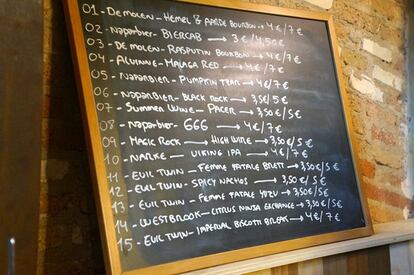 01 - De Molen - Hemel & Aarde Bourbon → 4€/7€
02 - Naparbier - Biercab → 3€/4,50€
03 - De Molen - Rasputin Bourbon → 4€/7€
04 - Alvinne - Malaga Red → 4€/7€
05 - Naparbier - Pumpkin Tzar → 4€/7€
06 - Naparbier - Black Rock → 3,5€/5€
07 - Summer Wine - Pacer → 3,50€/5€
08 - Naparbier - 666 → 4€/7€
09 - Magic Rock → High Wire → 3,50€/5€
10 - Närke - Viking IPA → 4€/7€
11 - Evil Twin - Femme Fatale Brett → 3,50€/5€
12 - Evil Twin - Spicy Nachos → 3,50€/5€
13 - Evil Twin - Femme Fatale Yuzu → 3,50€/5€
14 - Westbrook - Citrus Ninja Exchange → 3,50€/5€
15 - Evil Twin - Imperial Biscotti Break → 4€/7€